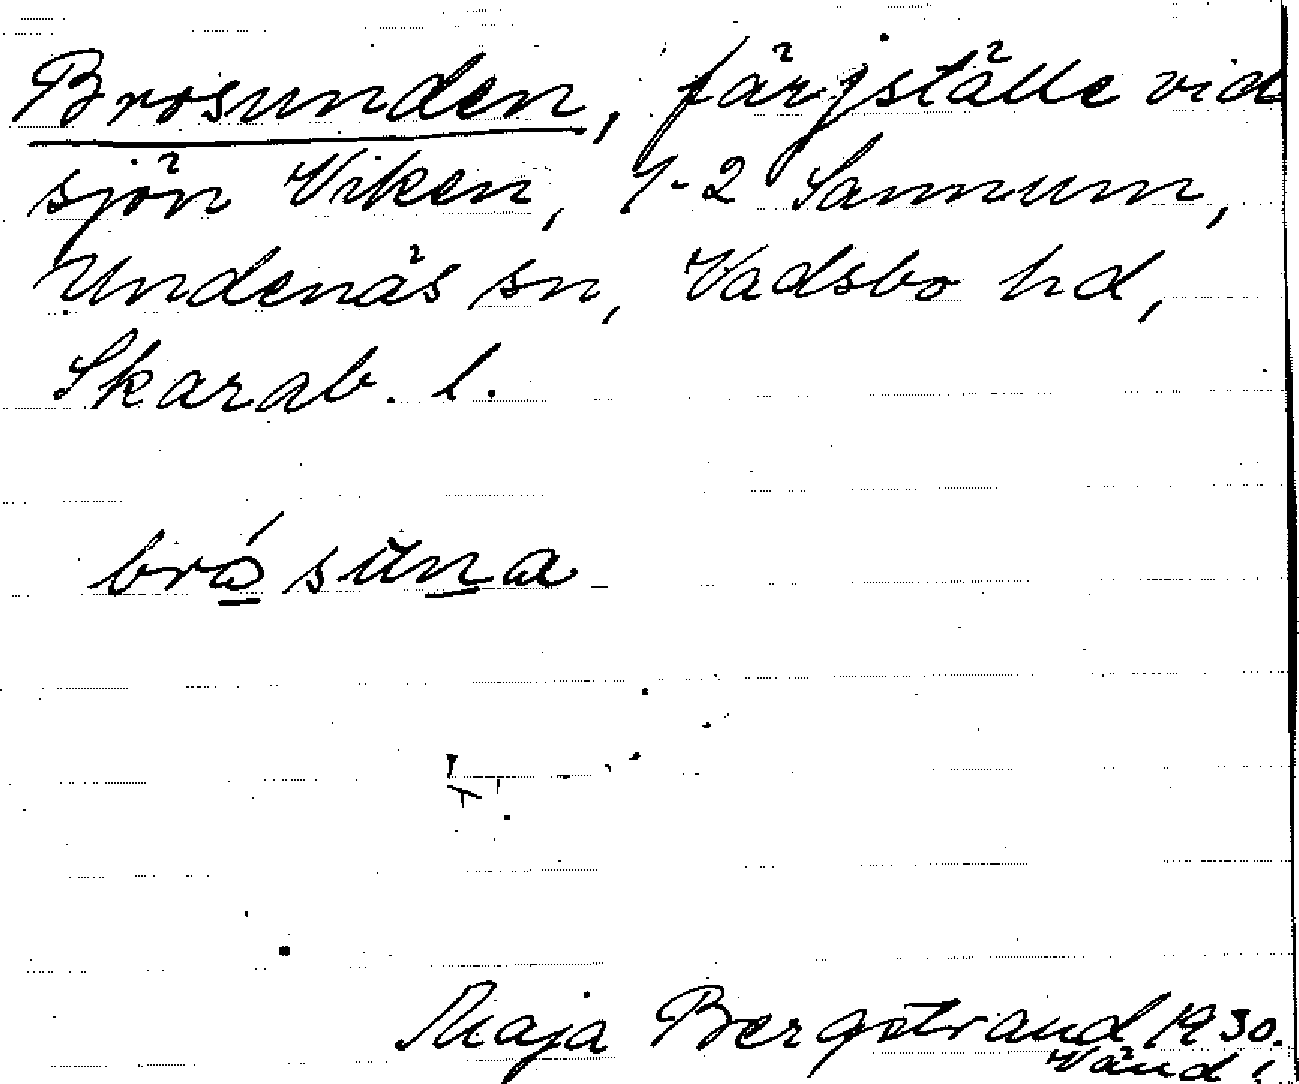 Brosunden, färjställe vid
sjön Viken, 1-2 Sannum,
Undenäs sn, Vadsbo hd,
Skarab. l.
brǻ sŭna
Maja Bergstrand 1930.
Vänd!